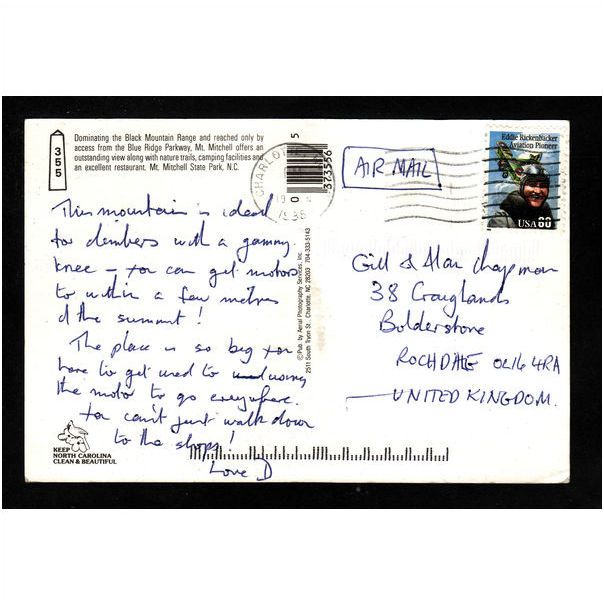 355
Dominating the Black Mountain Range and reached only by
access from the Blue Ridge Parkway, Mt. Mitchell offers an
outstanding view along with nature trails, camping facilities and
an excellent restaurant. Mt. Mitchell State Park, N.C.
This mountain is ideal
for climbers with a gammy
knee – you can get motors
to within a few metres
of the summit!
The place is so big you
have to get used to using
the motor to go everywhere.
You can't just walk down
to the shops!
Love D
KEEP
NORTH CAROLINA
CLEAN & BEAUTIFUL
©Pub. by Aerial Photography Services, Inc.
2511 South Tryon St., Charlotte, NC 28203 704-333-5143
5
0
373556
CHARLOT
AIR MAIL
Eddie Rickenbacker
Aviation Pioneer
USA 60
Gill & Alan Chapman
38 Craiglands
Balderstone
ROCHDALE OL16 4RA
UNITED KINGDOM.